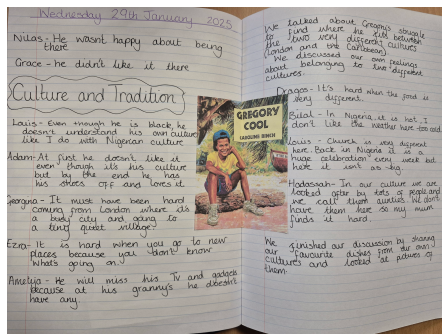 Wednesday 29th January 2025
Nilas - He wasn't happy about being
there
Grace - he didn't like it there
Culture and Tradition
Louis - Even though he is black, he
doesn't understand his own culture
like I do with Nigerian culture
Adam - At first he doesn't like it
even though it's his culture
but by the end he has
his shoes off and loves it.
Georgina - It must have been hard
coming from London where it's
a busy city and going to
a tiny quiet village
Ezra - It is hard when you go to new
places because you don't know
what's going on.
Amelia - He will miss his Tv and gadgets
because at his granny's he doesn't
have any.
GREGORY
COOL
CAROLINE BINCH
We talked about Gregory's struggle
to find where he fits between
the two very different cultures
(London and the Caribbean)
We discussed our own feelings
about belonging to two different
cultures.
Dragos - It's hard when the food is
very different.
Bilal - In Nigeria, it is hot, I
don't like the weather here - too cold
Louis - Church is very different
here. Back in Nigeria it is a
huge celebration every week but
here it isn't as big.
Hadassah - In our culture we are
looked after by lots of people and
we call them aunties. We don't
have them here so my mum
finds it hard.
We finished our discussion by sharing
our favourite dishes from our own
cultures and looked at pictures of
them.